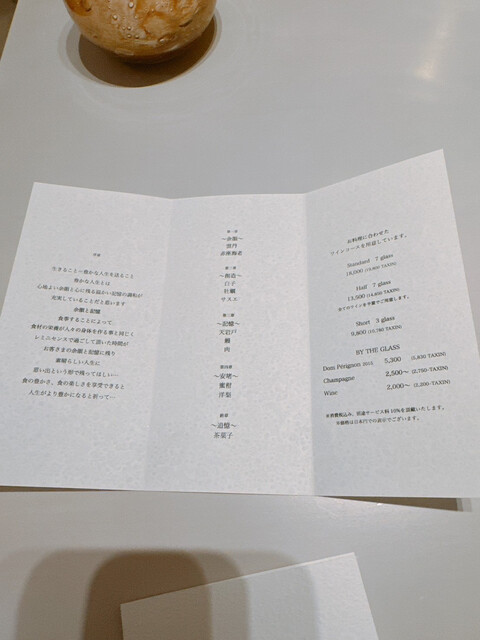 序章
生きること＝豊かな人生を送ること
豊かな人生とは
心地よい余韻と心に残る温かい記憶の調和が
充実していることだと思います
余韻と記憶
食事することによって、
食材の栄養が人々の身体を作る事と同じく
レミニセンスで過ごして頂いた時間が
お客さまの余韻と記憶に残り
素晴らしい人生に
思い出という形で残ってほしい…
食の豊かさ、食の楽しさを享受できると
人生がより豊かになると祈って…
第一章
〜余韻〜
雲丹
赤座海老
第二章
白子
牡蠣
サスエ
第三章
〜記憶〜
天岩戸
鰻
肉
第四章
〜安堵〜
蜜柑
洋梨
終章
〜追憶〜
茶菓子
お料理に合わせた
ワインコースを用意しています。
Standard 7 glass
18,000 (19,800-TAXIN)
Half 7 glass
13,500 (14,850-TAXIN)
全てのワインを半量でご用意します。
Short 3 glass
9,800 (10,780-TAXIN)
BY THE GLASS
Dom Perignon 2012 5,300 (5,830-TAXIN)
Champagne 2,500〜 (2,750-TAXIN)
Wine 2,000〜 (2,200-TAXIN)
※消費税込み、別途サービス料 10%を頂戴いたします。
※価格は日本円での表示でございます。